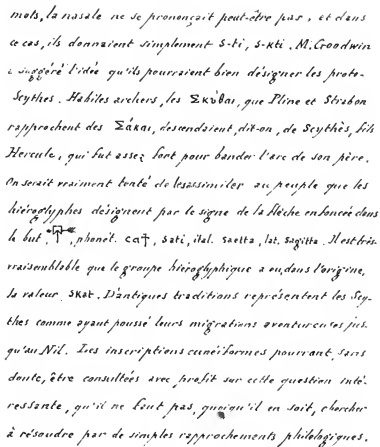 mots, la nasale ne se prononçait peut-être pas, et dans
ce cas, ils donnaient simplement S-ti, S-Kti. M. Goodwin
a suggéré l'idée qu'ils pourraient bien désigner les proto-
Scythes. Habiles archers, les Σκύθαι, que Pline et Strabon
rapprochent des Σάκαι, descendaient, dit-on, de Scythès, fils
Hercule, qui fut assez fort pour bander l'arc de son père.
On serait vraiment tenté de les assimiler au peuple que les
hiéroglyphes désignent par le signe de la flèche enfoncée dans
le but, phonét. ϲⲁϯ, sati, ital. saetta, lat. sagitta. Il est très-
vraisemblable que le groupe hiéroglyphique a eu, dans l'origine,
la valeur SKat. D'antiques traditions représentent les Scy-
thes comme ayant poussé leurs migrations aventureuses jus-
qu'au Nil. Les inscriptions cunéiformes pourront, sans
doute, être consultées avec profit sur cette question inté-
ressante, qu'il ne faut pas, quoiqu'il en soit, chercher
à résoudre par de simples rapprochements philologiques.